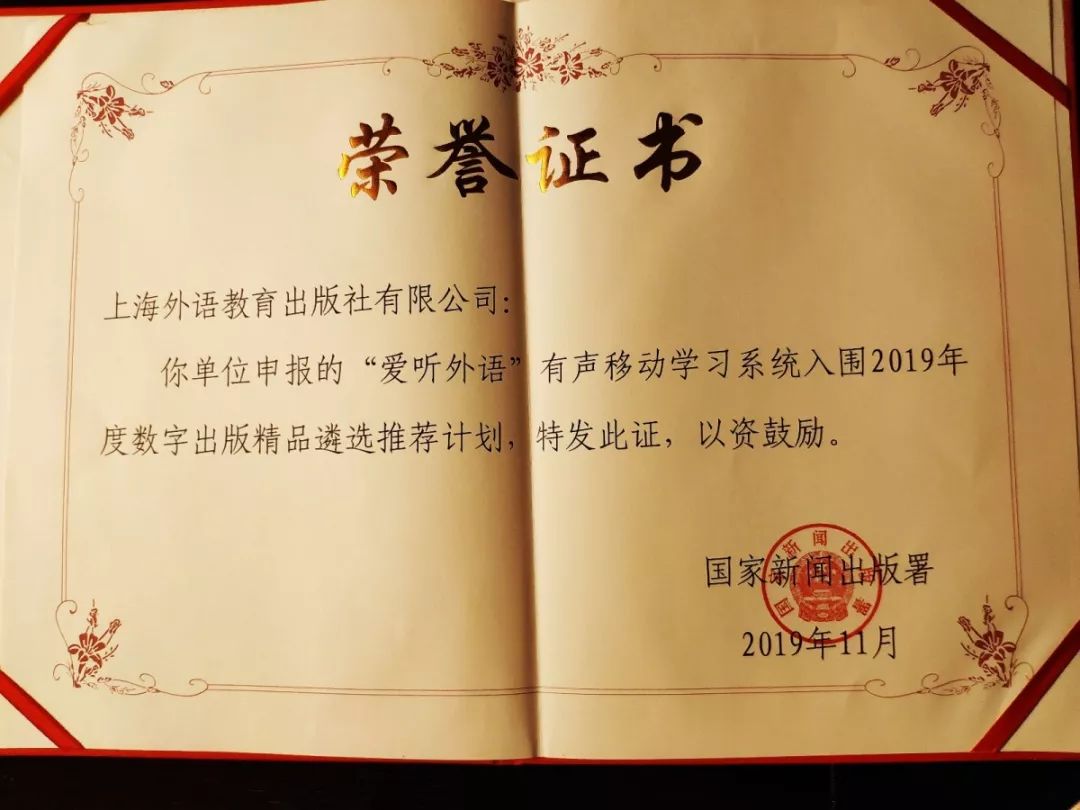 荣誉证书
上海外语教育出版社有限公司：
你单位申报的“爱听外语”有声移动学习系统入围2019年
度数字出版精品遴选推荐计划，特发此证，以资鼓励。
国家新闻出版署
国家新闻出版署
2019年11月